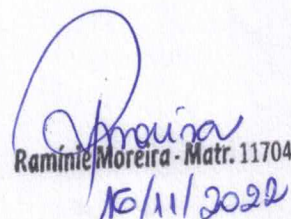 Ramínie Moreira - Matr. 11704
16/11/2022